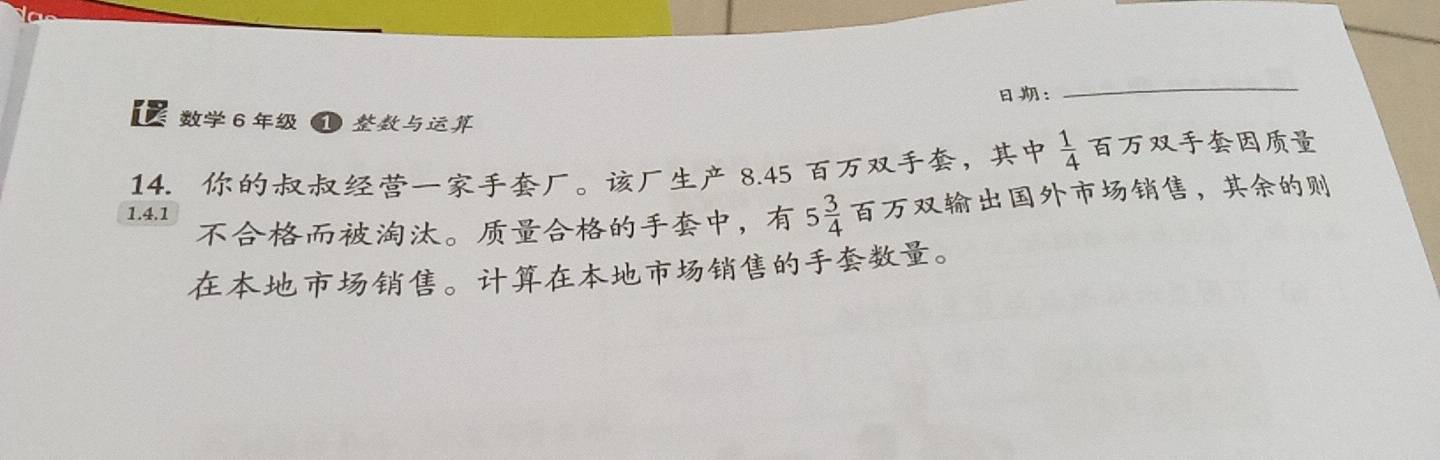 日期：
数学 6 年级 1 整数与运算
14. 你的叔叔经营一家手套厂。该厂生产 8.45 百万双手套，其中 1/4 百万双手套因质量
1.4.1
不合格而被淘汰。质量合格的手套中，有 5 3/4 百万双输出国外市场销售，其余的则
在本地市场销售。计算在本地市场销售的手套数量。